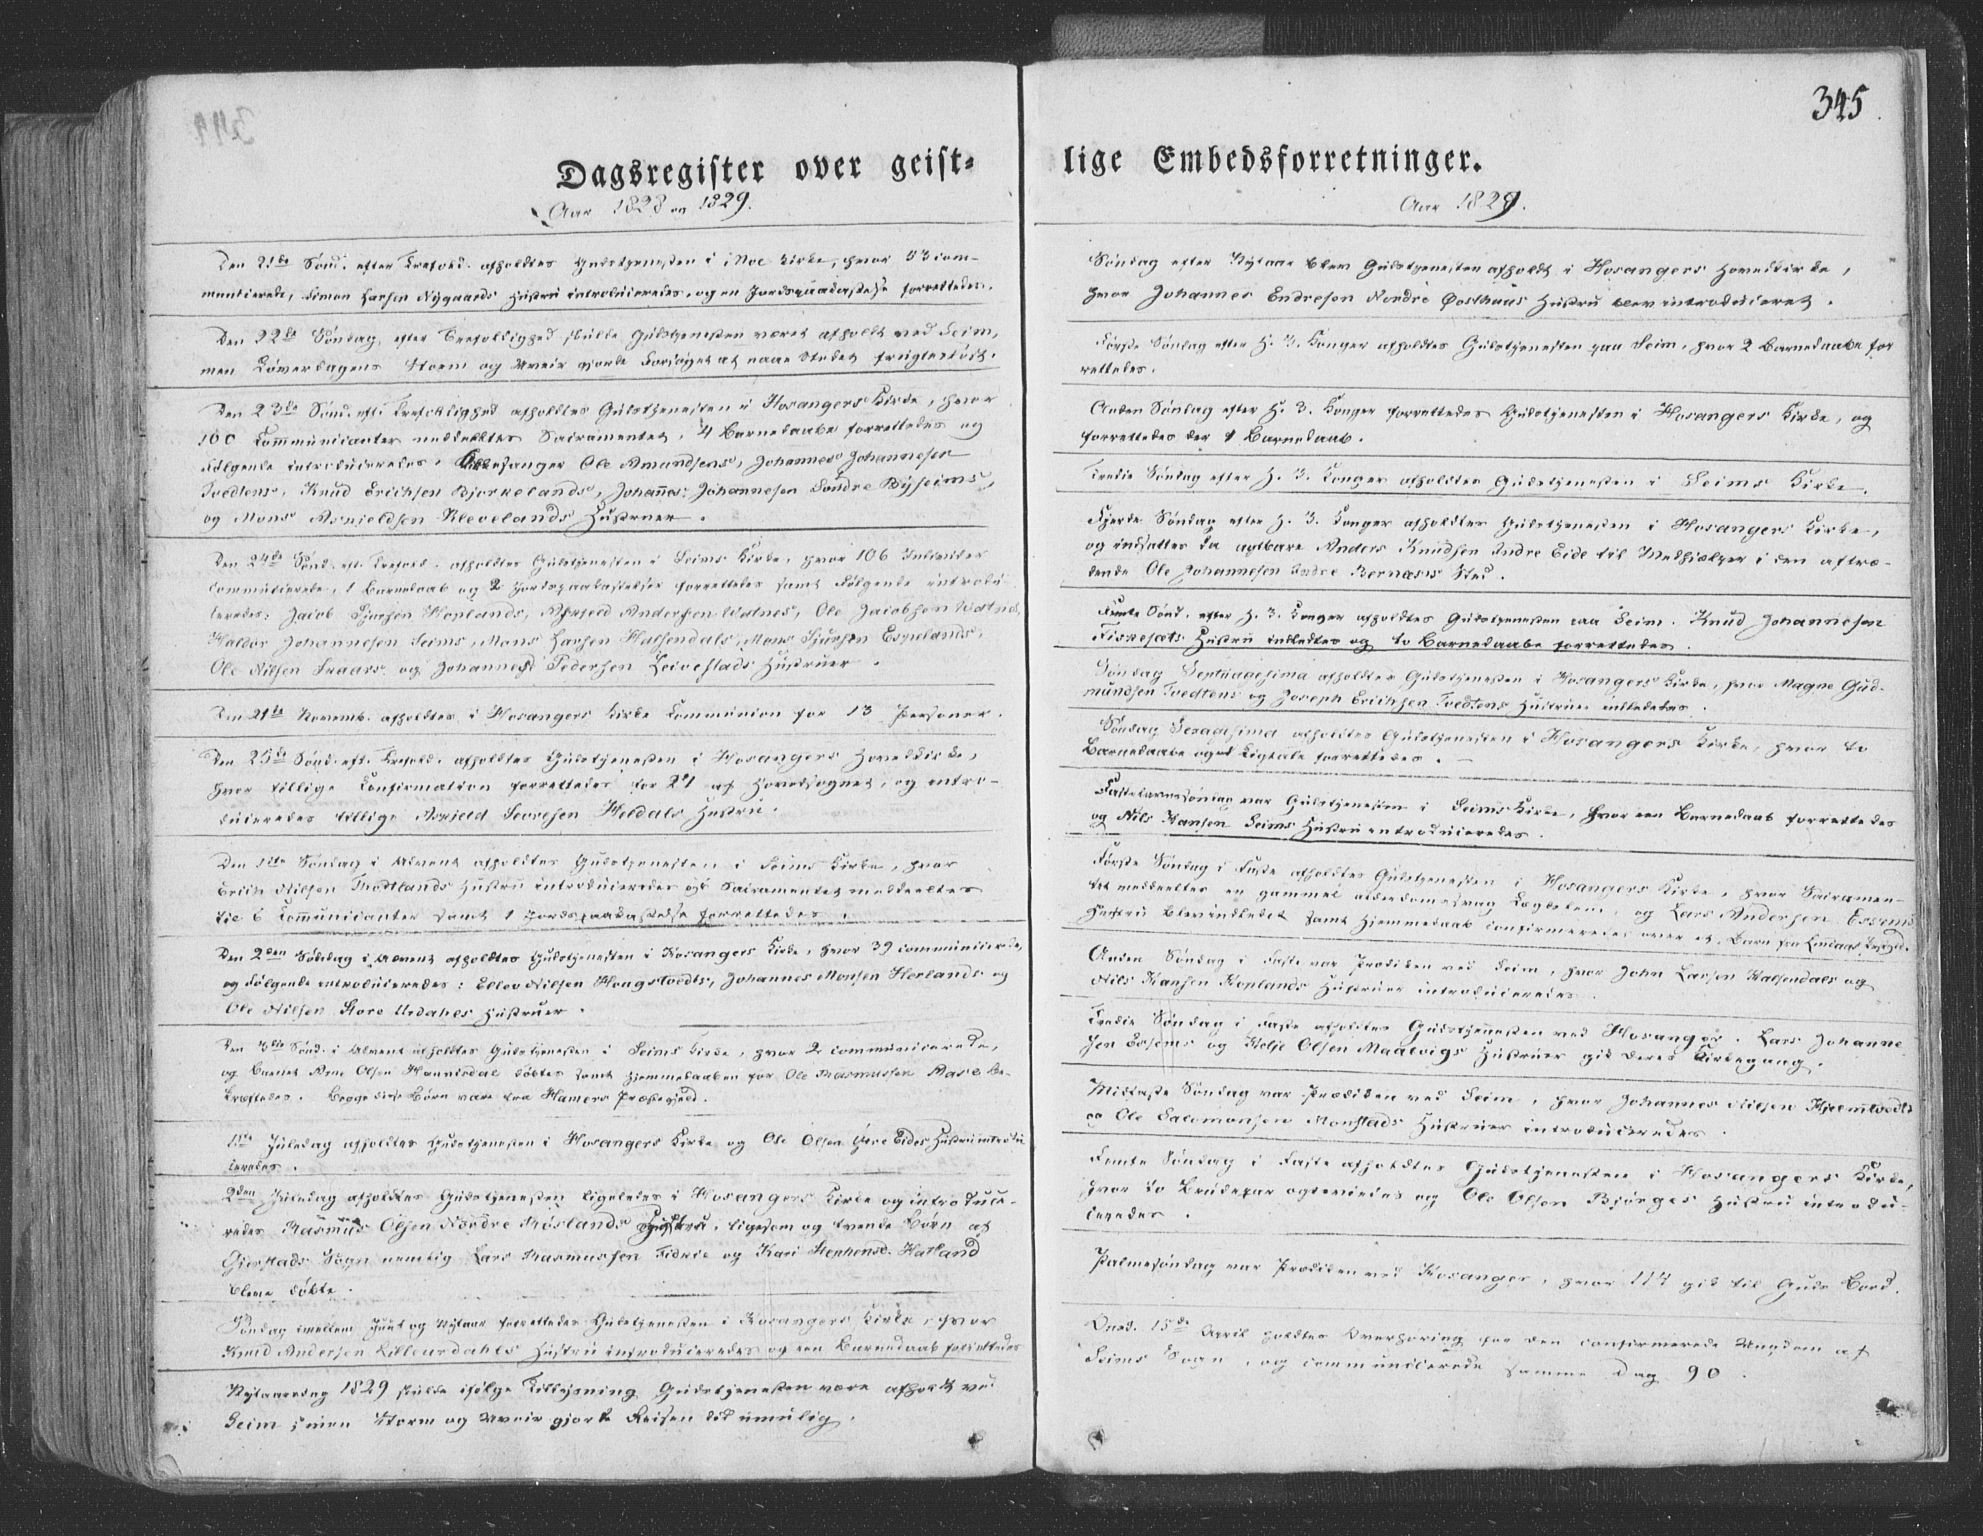 345
Dagsregister over geist-
Aar 1828 og 1829.
Den 21de Sönd. efter Trefold. afholdtes Gudstjenesten i Moe Kirke, hvor 53 com-
municerede, Simon Larsen Nygaards Hustru introduceredes, og en Jordspaakastelse forrettedes.
Den 22de Söndag efter Trefoldighed skulde Gudstjenesten været afholdt ved Seim,
men Löverdagens Storm og Uveir gjorde Forsöget at naae Stedet frugteslöst.
Den 23de Sönd. eft. Trefoldighed afholdtes Gudstjenesten i Hosangers Kirke, hvor
100 Communicanter meddeeltes Sacramentet, 4 Barnedaabe forrettedes og
fölgende introduceredes: Ole Amundsens, Johannes Johannesen
Tvedtens, Knud Erichsen Bjorkelands, Johañes Johannesen Söndre Byheims,
og Mons Arnjeldsen Klevelands Hustruer.
Den 24de Sönd. eft. Trefold. afholdtes Gudstjenesten i Seims Kirke, hvor 106 Individer
communicerede, 1 Barnedaab og 2 Jordspaakastelser forrettedes samt fölgende introdu-
ceredes: Jacob Sjursen Hoplands, Andersen Vatnes, Ole Jacobsen Vatnes,
Haldor Johannesen Seims, Mons Larsen Halsendals, Mons Sjursen Espelands,
Ole Nilsen Fraas og Johannes Pedersen Leivestads Hustruer.
Den 21de Novemb. afholdtes i Hosangers Kirke Communion for 13 Personer.
Den 25de Sönd. eft. Trefold. afholdtes Gudstjenesten i Hosangers Hovedkirke,
hvor tillige Confirmation forrettedes for 24 af Hovedsognet, og intro-
duceredes tillige Arnjeld Heldals Hustru.
Den 1ste Söndag i Advent afholdtes Gudstjenesten i Seims Kirke, hvor
Erich Nilsen Hustru introduceredes og Sacramentet meddeeltes
til 6 Communicanter samt 1 Jordspaakastelse forrettedes.
Den 2den Söndag i Advent afholdtes Gudstjenesten i Hosangers Kirke, hvor 39 communicerede,
og fölgende introduceredes: Ellev Nilsen Hougstvedts, Johannes Monsen Herlands og
Ole Nilsen Store Urdahls Hustruer.
Den 3die Sönd. i Advent afholdtes Gudstjenesten i Seims Kirke, hvor 2 communicerede,
og Barnet Arne Olsen Hannisdal döbtes samt Hjemmedaaben for Ole Rasmussen Aase be-
kræftedes. Begge disse Börn vare fra Hamers Præstegjeld.
1ste Juledag afholdtes Gudstjenesten i Hosangers Kirke og Ole Olsen Eides Hustru introdu-
ceredes.
2den Juledag afholdtes Gudstjenesten ligeledes i Hosangers Kirke og introduce-
redes Rasmus Olsen Nordre Röslands Hustru, ligesom og tvende Börn af
Gjerstads Sogn nemlig Lars Rasmussen Tidnie og Kari Stephensd. Hatland
bleve döbte.
Söndag imellem Juul og Nytaar forrettedes Gudstjenesten i Hosangers Kirke, hvor
Knud Andersen Lilleurdahls Hustru introduceredes og een Barnedaab forrettedes
Nytaarsdag 1829 skulde ifölge Tillysning Gudstjenesten være afholdt ved
Seim; men Storm og Uveir gjorde Reisen did umulig.
lige Embedsforretninger.
Aar 1829.
Söndag efter Nytaar blev Gudstjenesten afholdt i Hosangers Hovedkirke,
hvor Johannes Endresen Nordre Hustru blev introduceret.
Förste Söndag efter H. 3. Konger afholdtes Gudstjenesten paa Seim, hvor 2 Barnedaabe for
rettedes.
Anden Söndag efter H. 3. Konger forrettedes Gudstjenesten i Hosangers Kirke, og
forrettedes der 1 Barnedaab.
Tredie Söndag efter H. 3. Konger afholdtes Gudstjenesten i Seims Kirke.
Fjerde Söndag efter H. 3. Konger afholdtes Gudstjenesten i Hosangers Kirke,
og indsattes da agtbare Anders Knudsen Indre Eide til Medhjælper i den aftræ-
dende Ole Johannesen Indre Bernæses Sted.
Femte Sönd. efter H. 3. Konger afholdtes Gudstjenesten paa Seim. Knud Johannesen
Fiskesæts Hustru indledtes og to Barnedaabe forrettedes.
Söndag Septuagesima afholdtes Gudstjenesten i Hosangers Kirke, hvor Magne Gud-
mundsen Tvedtens og Joseph Erichsen Tvedtens Hustruer indledtes.
Söndag Sexagesima afholdtes Gudstjenesten i Hosangers Kirke, hvor to
Barnedaabe og Ligtale forrettedes.
Fastelavnssöndag var Gudstjenesten i Seims Kirke, hvor een Barnedaab forrettedes
og Nils Hansen Seims Hustru introduceredes.
Förste Söndag i Faste afholdtes Gudstjenesten i Hosangers Kirke, hvor Sacramen-
tet meddeeltes en gammel alderdomssvag Læglem, og Lars Andersen
Hustru blev indledet samt Hjemmedaab confirmeredes over et Barn fra Lindaas Præstegjd.
Anden Söndag i Faste var Prædiken ved Seim, hvor John Larsen Halsendals og
Nils Hansen Hoplands Hustruer introduceredes.
Tredie Söndag i Faste afholdtes Gudstjenesten ved Hosanger. Lars Johanne-
sen og Helje Olsen Maalvigs Hustruer gik deres Kirkegang.
Midfaste Söndag var Prædiken ved Seim, hvor Johannes Nilsen Hjelmtvedts
og Ole Salomonsen Monstads Hustruer introduceredes.
Femte Söndag i Faste afholdtes Gudstjenesten i Hosangers Kirke,
hvor to Brudepar ægtevieds og Ole Olsen Bjørges Hustru introdu-
ceredes.
Palmesöndag var Prædiken ved Hosanger, hvor 117 gik til Guds Bord.
Onsd. 15de April holdtes Overhöring for den confirmerede Ungdom af
Seims Sogn, og communicerede samme Dag 90.